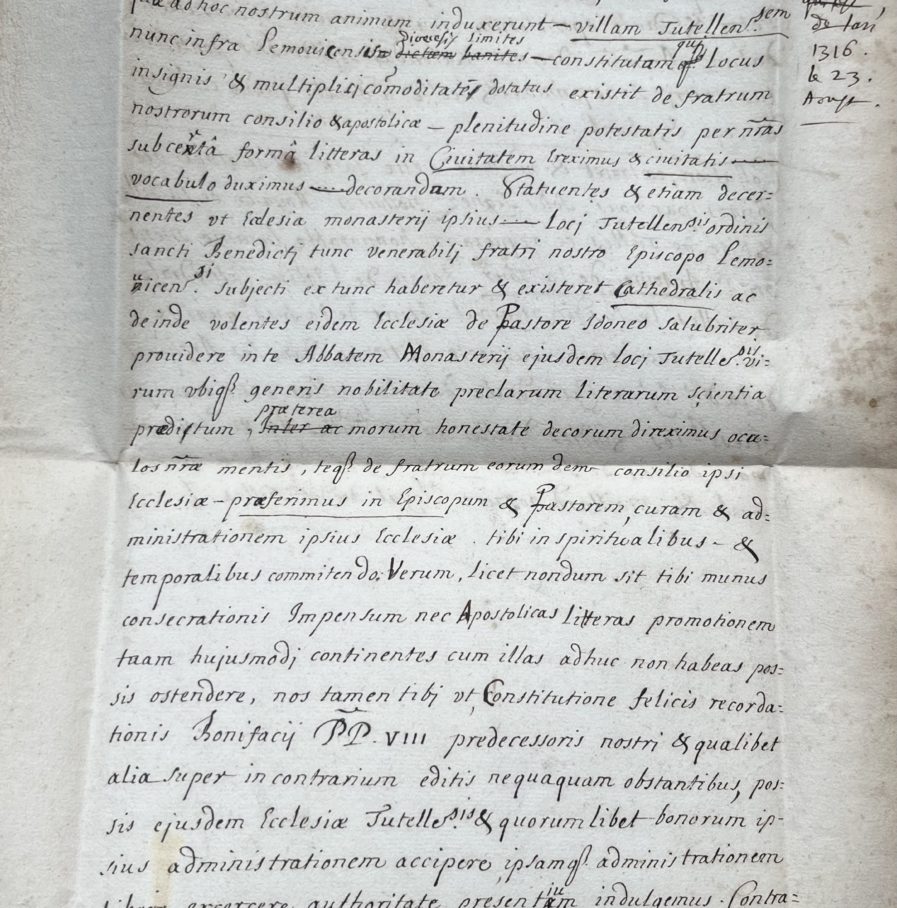 ad hoc nostrum animum induxerunt — villam Tutellen.sem
nunc infra Lemovicensis dictem banites diœcesis limites — constitutam quæ Locus
insignis & multiplicj comoditate dotatus existit de fratrum
nostrorum consilio & apostolicæ — plenitudine potestatis per nr̃as
sub certâ formâ litteras in Civitatem Ereximus & civitatis —
vocabulo duximus — decorandam. Statuentes & etiam decer=
nentes vt Ecclesia monasterij ipsius — locj Tutellensis ordinis
sancti Benedictj tunc venerabilj fratri nostro Episcopo Lemo=
uicen.si subjecti ex tunc haberetur & existeret Cathedralis ac
deinde volentes eidem Ecclesiæ de Pastore Idoneo salubriter
prouidere in te Abbatem Monasterij ejusdem locj Tutellen.sis vi=
rum vbiq. generis nobilitate preclarum literarum scientia
prædictum, Inter ac præterea morum honestate decorum direximus ocu=
los nr̃æ mentis, teq. de fratrum eorumdem consilio ipsi
Ecclesiæ — præferimus in Episcopum & Pastorem, curam & ad=
ministrationem ipsius Ecclesiæ. tibi in spiritualibus — &
temporalibus commitendo. Verum, licet nondum sit tibi munus
consecrationis Impensum nec Apostolicas litteras promotionem
tuam hujusmodj continentes cum illas adhuc non habeas pos=
sis ostendere, nos tamen tibj vt, Constitutione felicis recorda=
tionis Bonifacij PP. VIII predecessoris nostri & qualibet
alia super in contrarium editis nequaquam obstantibus, pos=
sis ejusdem Ecclesiæ Tutellen.sis & quorumlibet bonorum ip=
sius administrationem accipere, ipsamq. administrationem
exercere authoritate presentium indulgemus. Contra=
de Jan
1316.
le 23.
Aoust.